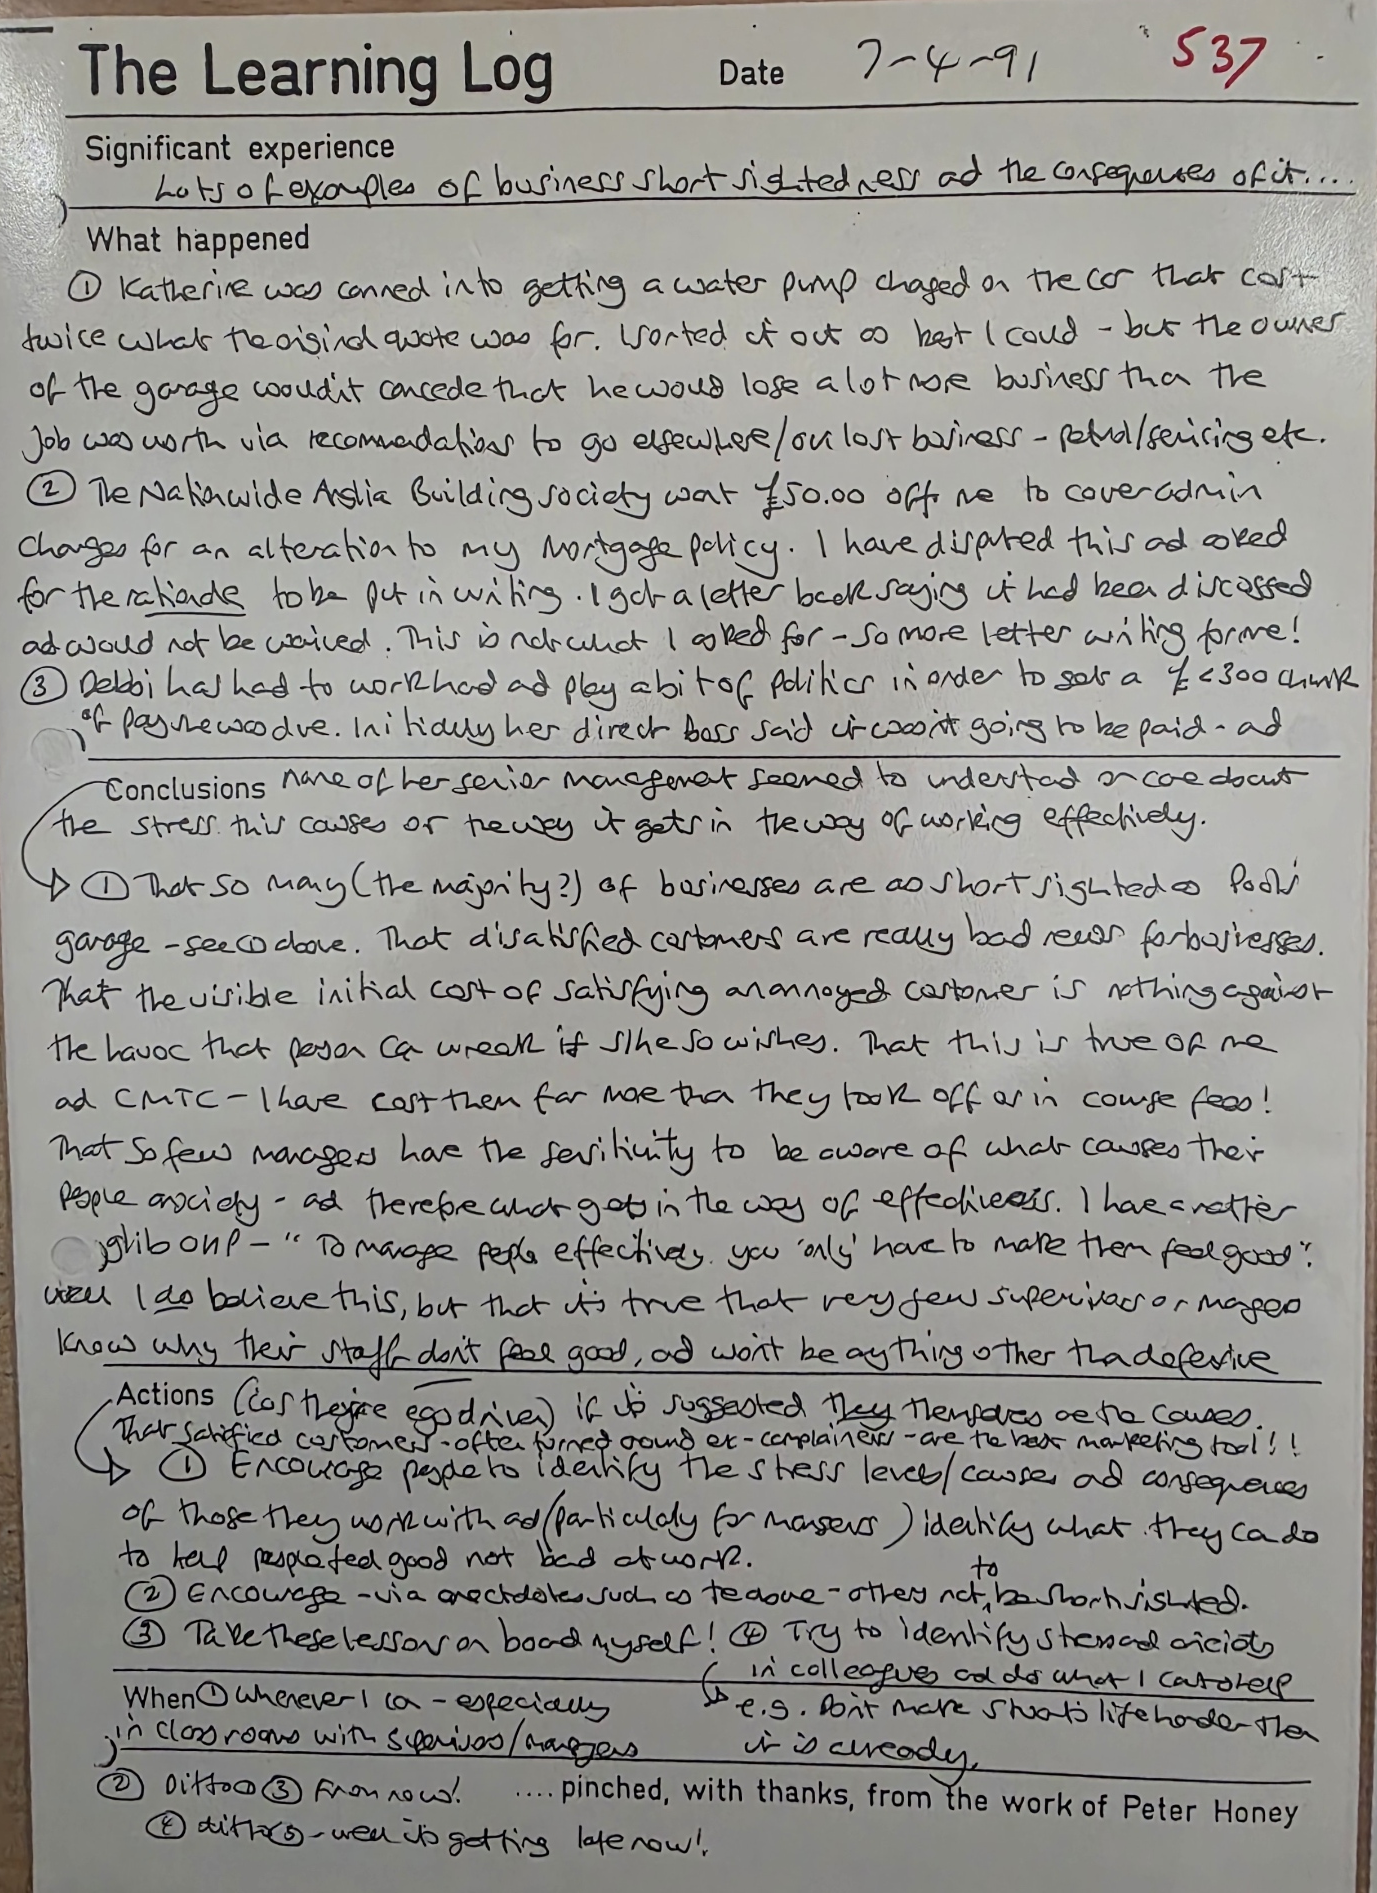 The Learning Log Date 7-4-91 537
Significant experience
Lots of examples of business short sightedness ad the consequences of it....
What happened
① Katherine was conned into getting a water pump chaged on the car that cost
twice what the original quote was for. I sorted it out as best I could - but the owner
of the garage wouldn't concede that he would lose a lot more business than the
job was worth via recommendations to go elsewhere/our lost business - petrol/servicing etc.
② The Nationwide Anglia Building society want £50.00 off me to cover admin
charges for an alteration to my mortgage policy. I have disputed this ad asked
for the rationale to be put in writing. I got a letter back saying it had been discussed
ad would not be waived. This is not what I asked for - so more letter writing for me!
③ Debbi has had to work hard ad play a bit of politics in order to get a £<300 chunk
of pay she was due. Initially her direct boss said it wasn't going to be paid - ad
Conclusions none of her senior management seemed to understand or care about
the stress this causes or the way it gets in the way of working effectively.
① That so many (the majority?) of businesses are as short sighted as
garage - see ① above. That disatisfied customers are really bad news for businesses.
That the visible initial cost of satisfying an annoyed customer is nothing against
the havoc that person can wreak if s/he so wishes. That this is true of me
ad CMTC - I have cost them far more than they took off us in course fees!
That so few managers have the sensitivity to be aware of what causes their
people anxiety - ad therefore what gets in the way of effectiveness. I have a rather
glib OHP - "To manage people effectively you 'only' have to make them feel good".
Well I do believe this, but that it's true that very few supervisors or managers
know why their staff don't feel good, ad won't be anything other than defensive
Actions (cos they're ego driven) if it's suggested they themselves are the causes.
That satisfied customers - often turned around ex-complainers - are the best marketing tool!!
① Encourage people to identify the stress levels/causes ad consequences
of those they work with ad (particularly for managers) identify what they can do
to help people feel good not bad at work.
② Encourage - via anecdotes such as the above - others not to be short sighted.
③ Take these lessons on board myself! ④ Try to identify stress ad anxiety
in colleagues ad do what I can to help
When ① whenever I can - especially
e.g. Don't make Stuart's life harder than
in classrooms with supervisors/managers
it is already.
② Ditto ③ From now! ....pinched, with thanks, from the work of Peter Honey
④ ditto ⑤ - well it's getting late now!